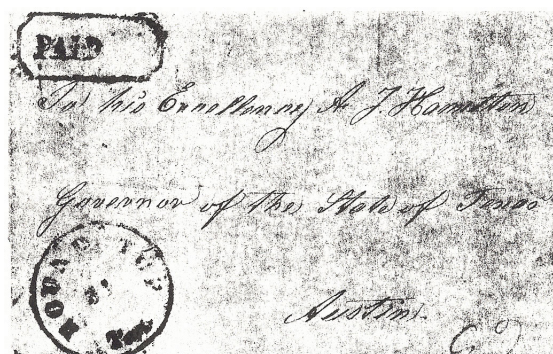 PAID
To his Excellency A. J. Hamilton
Governor of the State of Texas
Austin.
Tex